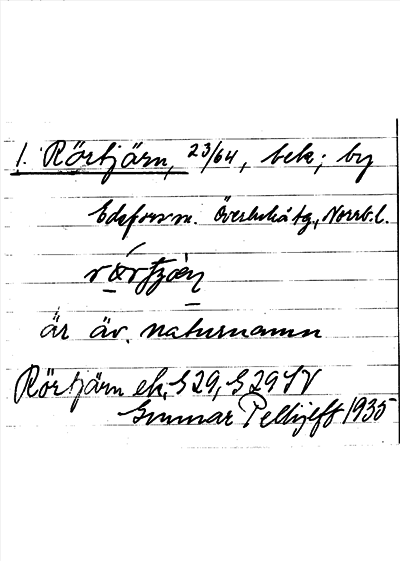 1. Rörtjärn, 23/64, bek; by
Edeforsn. Överluleå tg, Norrb.l.
är äv. naturnamn
Rörtjärn ek. S 29, S 29 SV
Gunnar Pellijeff 1935